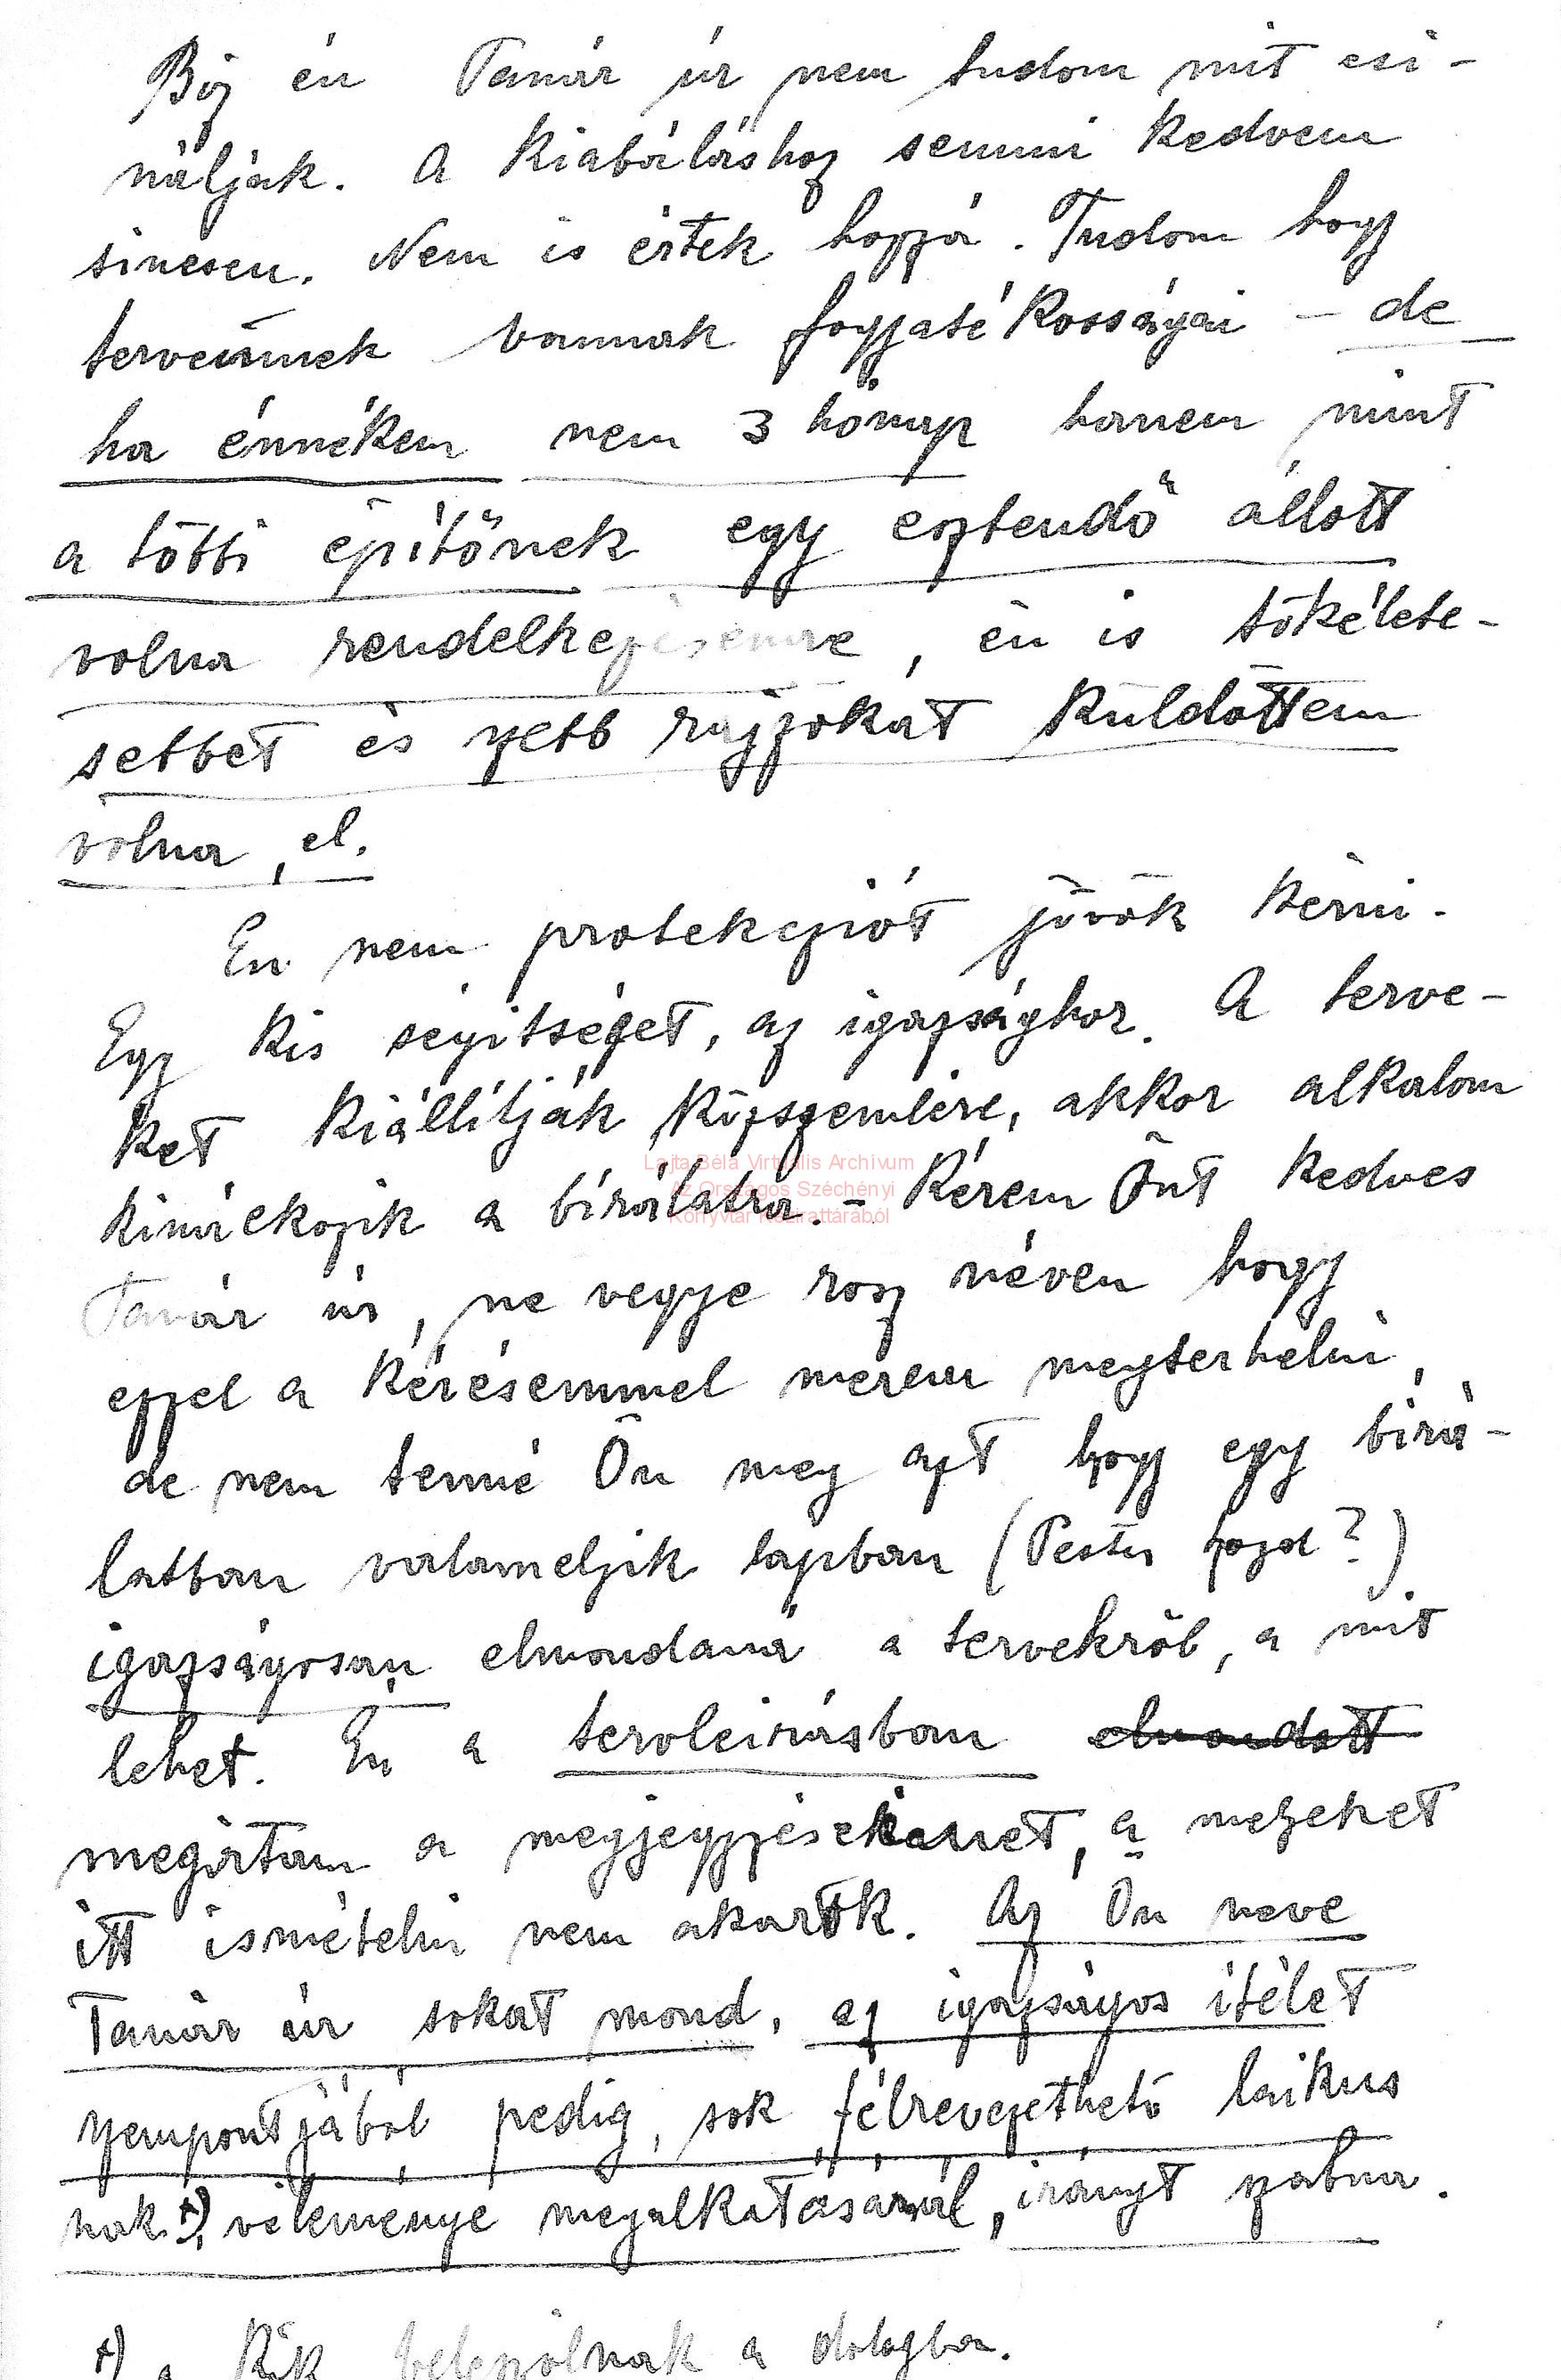 Biz én Tanár úr nem tudom mit csi-
náljak. A kiabáláshoz semmi kedvem
sincsen. Nem is értek hozzá. Tudom hogy
terveimnek vannak fogyatékosságai – de
ha énnékem nem 3 hónap hanem mint
a többi építőnek egy esztendő állott
volna rendelkezésemre, én is tökélete-
sebbet és szebb rajzokat küldöttem
volna el.
Én nem protekcziót jövök kérni.
Egy kis segitséget, az igazsághoz. A terve-
ket kiállítják közszemlére, akkor alkalom
kinálkozik a bírálatra. – Kérem Önt kedves
Tanár úr, ne vegye rosz néven hogy
ezzel a kérésemmel merem megterhelni,
de nem tenné Ön meg azt hogy egy birá-
latban valamelyik lapban (Pesti Napl?)
igazságosan elmondaná a tervekről, a mit
lehet. Én a tervleirásban elmondott
megirtam a megjegyzéseimet, a melyeket
itt ismételni nem akarok. Az Ön neve
Tanár úr sokat mond, az igazságos itélet
szempontjából pedig, sok félrevezethető laikus
nak +), véleménye megalkotásánál, irányt szabna.
+) a kik beleszólnak a dologba.
Lajta Béla Virtuális Archívum
Az Országos Széchényi
Könyvtár Kézirattárából